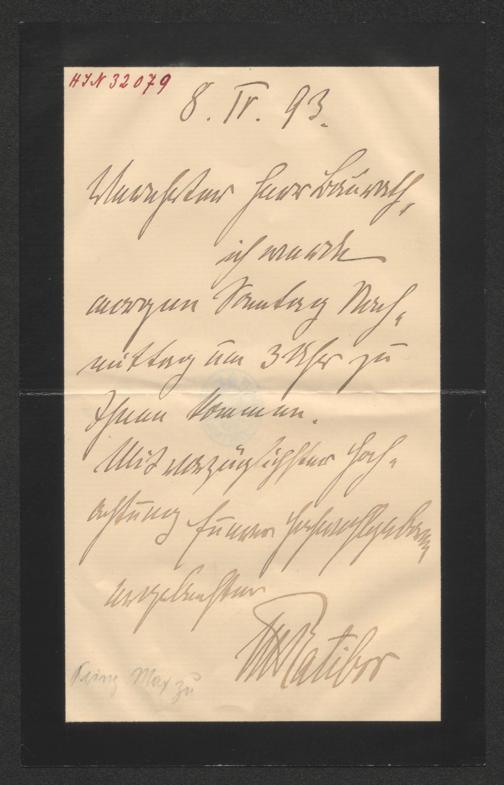 HIN 32079
8. IV. 93.
Verehrter Herr Baurath,
ich werde
morgen Sonntag Nach-
mittag um 3 Uhr zu
Ihnen kommen.
Mit vorzüglichster Hoch-
achtung Euerer Hochwohlgeboren
ergebenster
Ratibor
Prinz Max zu